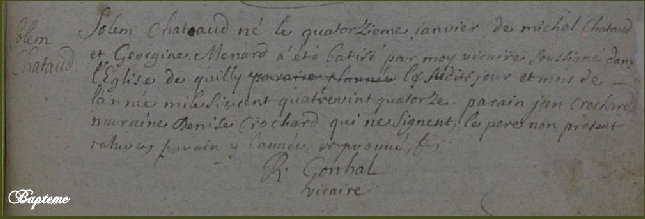 Jolem
Chataud
Jolem Chataud né le quatorzieme janvier de michel Chataud
et Georgine Menard a été batisé par moy vicaire soussigné dans
l'Eglise de quilly paraire lannée les susdits jour et mois de
lannée mil sixcent quatrevint quatorze. parain jan Crochard
maraine Denise Crochard qui ne signent, le pere non present
ratures parain y lannée, reprouvé,
R. Gonhal
vicaire
Bapteme